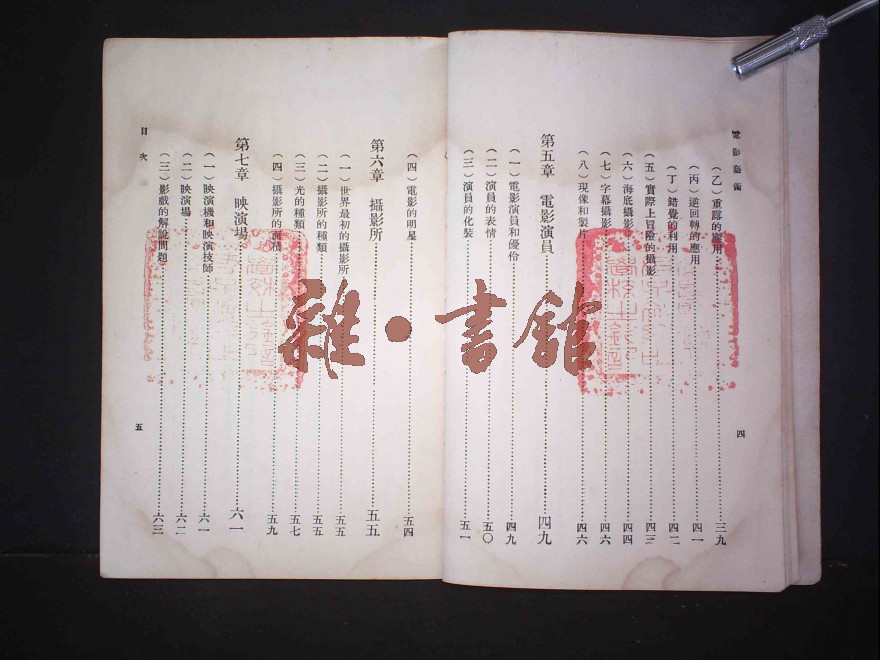 電影藝術
（乙）重露的應用……三九
（丙）逆回轉的應用……四一
（丁）錯覺的利用……四二
（五）實際上冒險的攝影……四三
（六）海底攝影……四四
（七）字幕攝影……四六
（八）現像和製片……四六
第五章 電影演員……四九
（一）電影演員和優伶……四九
（二）演員的表情……五〇
（三）演員的化裝……五一
四
（四）電影的明星……五四
第六章 攝影所……五五
（一）世界最初的攝影所……五五
（二）攝影所的種類……五五
（三）光的種類……五七
（四）攝影所的面積……五九
第七章 映演場……六一
（一）映演機和映演技師……六一
（二）映演場……六二
（三）影戲的解說問題……六三
目次
五
雜·書館